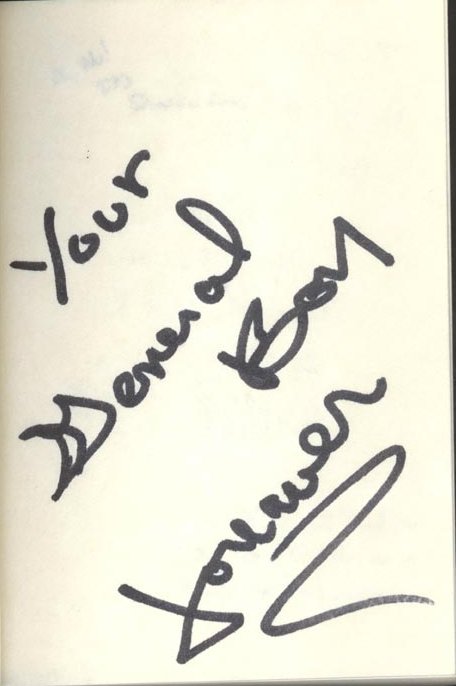 Your
General
Boy
Forever